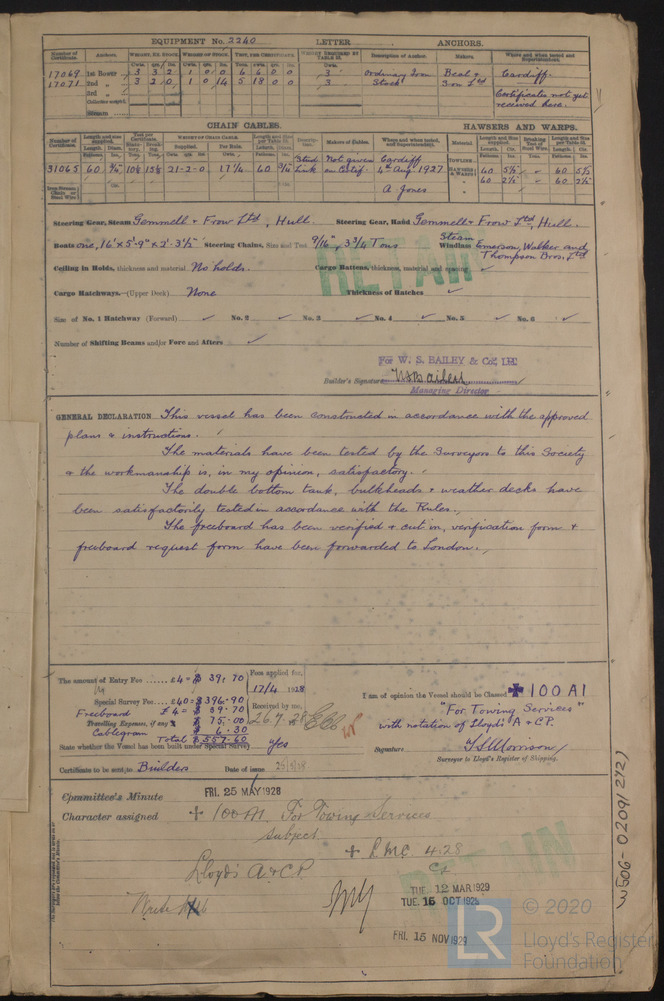 EQUIPMENT No. 2240 LETTER ANCHORS.
Number of Certificate. Anchors. WEIGHT, EX. STOCK. WEIGHT OF STOCK. TEST, PER CERTIFICATE. WEIGHT REQUIRED BY TABLE 22. Description of Anchor. Makers. Where and when tested and Superintendent.
Cwts. qrs. lbs. Cwts. qrs. lbs. Cwts.
17069 1st Bower 3 3 2 1 0 0 6 6 0 0 3 Ordinary Iron Beal & Cardiff.
17071 2nd " 3 2 0 1 0 14 5 18 0 0 3 Stock Son Ltd
3rd " Certificates not yet
received here.
Stream
CHAIN CABLES. HAWSERS AND WARPS.
Number of Certificate. Length and size supplied. Test per Certificate. WEIGHT OF CHAIN CABLE. Length and Size per Table 22. Makers of Cables. Where and when tested, and Superintendent. Material. Length and Size supplied. Breaking Test of Steel Wire. Length and Size per Table 22.
31065 60 21-2-0 17¼ 60 Stud Link Not given on Certif. Cardiff 4th Aug. 1927 A Jones
TOWLINE
HAWSERS & WARPS 60 5½ " " 60 5½
" 60 2½ " " 60 2½
Steering Gear, Steam Gemmell & Frow Ltd, Hull. Steering Gear, Hand Gemmell & Frow Ltd, Hull.
Boats One, 16' x 5'-9" x 2'-3½" Steering Chains, Size and Test 9/16", 3¾ Tons Steam Windlass Emerson, Walker and Thompson Bros. Ltd
Ceiling in Holds, thickness and material No holds. Cargo Battens, thickness, material and spacing ✓
RETAIN
Cargo Hatchways.—(Upper Deck) None Thickness of Hatches ✓
Size of No. 1 Hatchway (Forward) ✓ No. 2 ✓ No. 3 ✓ No. 4 ✓ No. 5 ✓ No. 6 ✓
Number of Shifting Beams and/or Fore and Afters ✓
For W. S. BAILEY & Co., Ltd
Builder's Signature WSBailey
Managing Director
GENERAL DECLARATION This vessel has been constructed in accordance with the approved
plans & instructions.
The materials have been tested by the Surveyors to this Society
& the workmanship is, in my opinion, satisfactory.
The double bottom tank, bulkheads & weather decks have
been satisfactorily tested in accordance with the Rules.
The freeboard has been verified & cut in, verification form &
freeboard request form have been forwarded to London.
The amount of Entry Fee £4 = $ 39.70 Fees applied for,
17/4 1928
Special Survey Fee £40 = $ 396.90 Received by me,
Freeboard £4 = $ 39.70 26.7.28
Travelling Expenses, if any $ 75.00
Cablegram $ 6.30
Total $ 557.60
State whether the Vessel has been built under Special Survey Yes
Certificate to be sent to Builders Date of issue 25/5/28
I am of opinion the Vessel should be Classed ✠ 100 A1
"For Towing Services"
with notation of Lloyd's A & C.P.
Signature T S Morrison
Surveyor to Lloyd's Register of Shipping.
Committee's Minute FRI. 25 MAY 1928
Character assigned + 100 A1. For Towing Services
Subject
+ LMC. 4.28
CL
Lloyd's A & C.P.
RETAIN
TUE. 12 MAR 1929
TUE. 15 OCT 1929
FRI. 15 NOV 1929
W506-0209 (2/2)
LR
© 2020
Lloyd's Register
Foundation